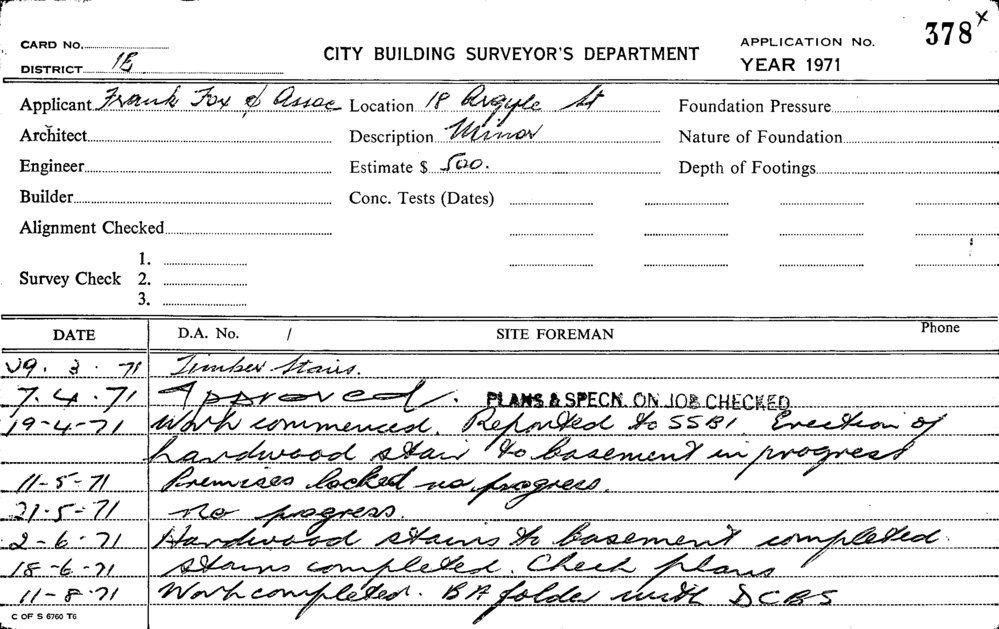 378 x
CARD No.
CITY BUILDING SURVEYOR'S DEPARTMENT
APPLICATION No.
DISTRICT 1E
YEAR 1971
Applicant Frank Fox & Assoc Location 18 Argyle St Foundation Pressure
Architect Description Minor Nature of Foundation
Engineer Estimate $ 500. Depth of Footings
Builder Conc. Tests (Dates)
Alignment Checked
1.
Survey Check 2.
3.
DATE D.A. No. / SITE FOREMAN Phone
29. 3. 71 Timber Stairs.
7. 4. 71 Approved. PLANS & SPECN. ON JOB CHECKED
19-4-71 Work commenced. Reported to SSBI Erection of
hardwood stair to basement in progress
11-5-71 Premises locked no progress.
21-5-71 no progress.
2-6-71 Hardwood stairs to basement completed.
18-6-71 stairs completed. Check plans
11-8-71 Work completed. BA folder with DCBS
C OF S 6760 T6